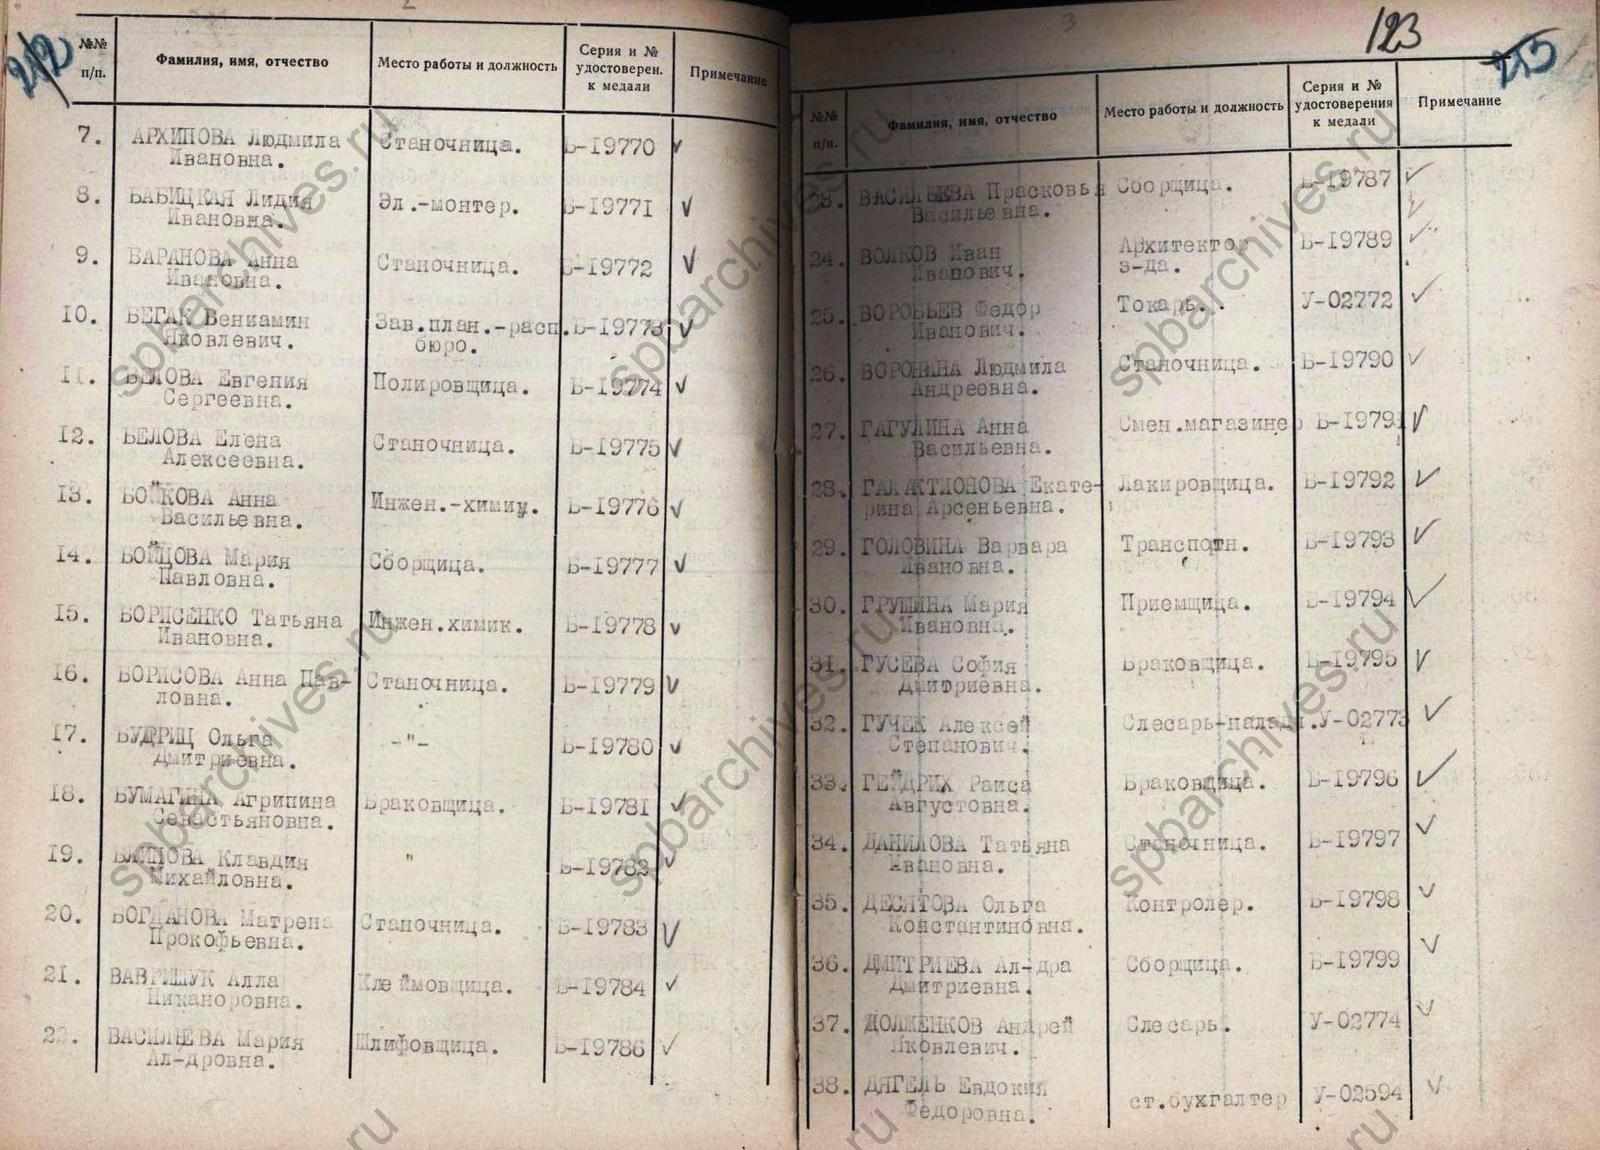 2
212
№№ п/п.
Фамилия, имя, отчество
Место работы и должность
Серия и № удостоверен. к медали
Примечание
7. АРХИПОВА Людмила Станочница. Б-19770
Ивановна.
8. БАБИЦКАЯ Лидия Эл.-монтер. Б-19771
Ивановна.
9. БАРАНОВА Анна Станочница. Б-19772
Ивановна.
10. БЕГАК Вениамин Зав.план.-расп. Б-19773
Яковлевич. бюро.
11. БЕЛОВА Евгения Полировщица. Б-19774
Сергеевна.
12. БЕЛОВА Елена Станочница. Б-19775
Алексеевна.
13. БОЙКОВА Анна Инжен.-химик. Б-19776
Васильевна.
14. БОЙЦОВА Мария Сборщица. Б-19777
Павловна.
15. БОРИСЕНКО Татьяна Инжен.химик. Б-19778
Ивановна.
16. БОРИСОВА Анна Пав- Станочница. Б-19779
ловна.
17. БУДРИЦ Ольга -"- Б-19780
Дмитриевна.
18. БУМАГИНА Агрипина Браковщица. Б-19781
Севастьяновна.
19. БЛИНОВА Клавдия " Б-19782
Михайловна.
20. БОГДАНОВА Матрена Станочница. Б-19783
Прокофьевна.
21. ВАВРИШУК Алла Клеймовщица. Б-19784
Никаноровна.
22. ВАСИЛЬЕВА Мария Шлифовщица. Б-19786
Ал-дровна.
3
123
213
№№ п/п.
Фамилия, имя, отчество
Место работы и должность
Серия и № удостоверения к медали
Примечание
23. ВАСИЛЬЕВА Прасковья Сборщица. Б-19787
Васильевна.
24. ВОЛКОВ Иван Архитектор Б-19789
Иванович. з-да.
25. ВОРОБЬЕВ Федор Токарь. У-02772
Иванович.
26. ВОРОНИНА Людмила Станочница. Б-19790
Андреевна.
27. ГАГУЛИНА Анна Смен.магазинер Б-19791
Васильевна.
28. ГАЛАКТИОНОВА Екате- Лакировщица. Б-19792
рина Арсеньевна.
29. ГОЛОВИНА Варвара Транспотн. Б-19793
Ивановна.
30. ГРУШИНА Мария Приемщица. Б-19794
Ивановна.
31. ГУСЕВА София Браковщица. Б-19795
Дмитриевна.
32. ГУЧЕК Алексей Слесарь-наладч. У-02773
Степанович.
33. ГЕЙДРИХ Раиса Браковщица. Б-19796
Августовна.
34. ДАНИЛОВА Татьяна Станочница. Б-19797
Ивановна.
35. ДЕСЯТОВА Ольга Контролер. Б-19798
Константиновна.
36. ДМИТРИЕВА Ал-дра Сборщица. Б-19799
Дмитриевна.
37. ДОЛЖЕНКОВ Андрей Слесарь. У-02774
Яковлевич.
38. ДЯГЕЛЬ Евдокия ст.бухгалтер У-02594
Федоровна.
spbarchives.ru
spbarchives.ru
spbarchives.ru
spbarchives.ru
spbarchives.ru
spbarchives.ru